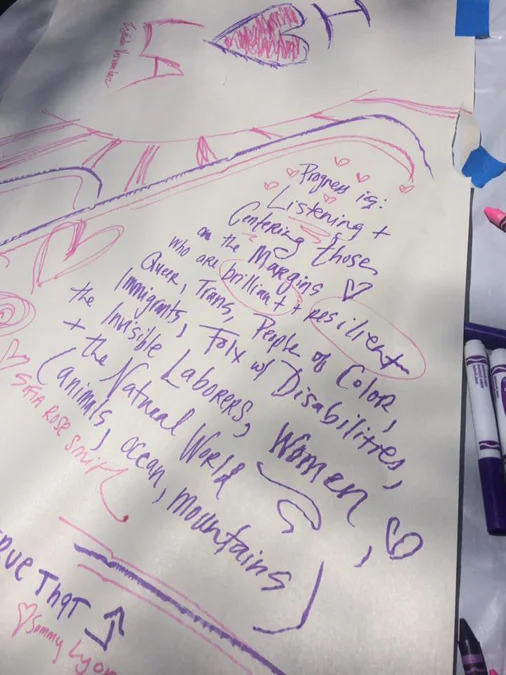 I ♥ LA
Progress is:
Listening +
Centering those
on the Margins ♡
who are brilliant + resilient
Queer, Trans, People of Color,
Immigrants, Folx w/ Disabilities,
the Invisible Laborers, Women, ♡
+ the Natural World
(animals, ocean, mountains)
♡ SAFIA ROSE SMITH
THAT
♡ Sammy Lyon